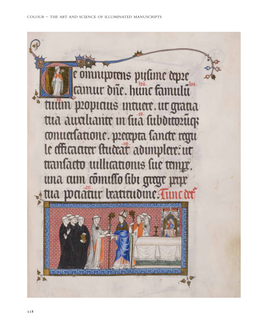 COLOUR – THE ART AND SCIENCE OF ILLUMINATED MANUSCRIPTS
Te omnipotens piissime depre
camur dñe. hunc famulũ
tuum propicius intuere. ut gratia
tua auxiliante in sua subditorũqʒ
conversatione. precepta sancte regu
le efficaciter studeat adimplere: ut
transacto villicationis sue tempr̃,
una cum cõmisso sibi grege prpr̃
tua pociatur beatitudine. Tunc